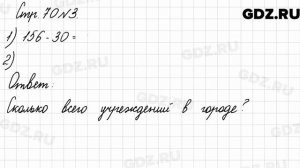 Стр. 70 №3.
GDZ.RU
1) 156-30=
2)
Ответ:
Сколько всего учреждений в городе?
GDZ.RU